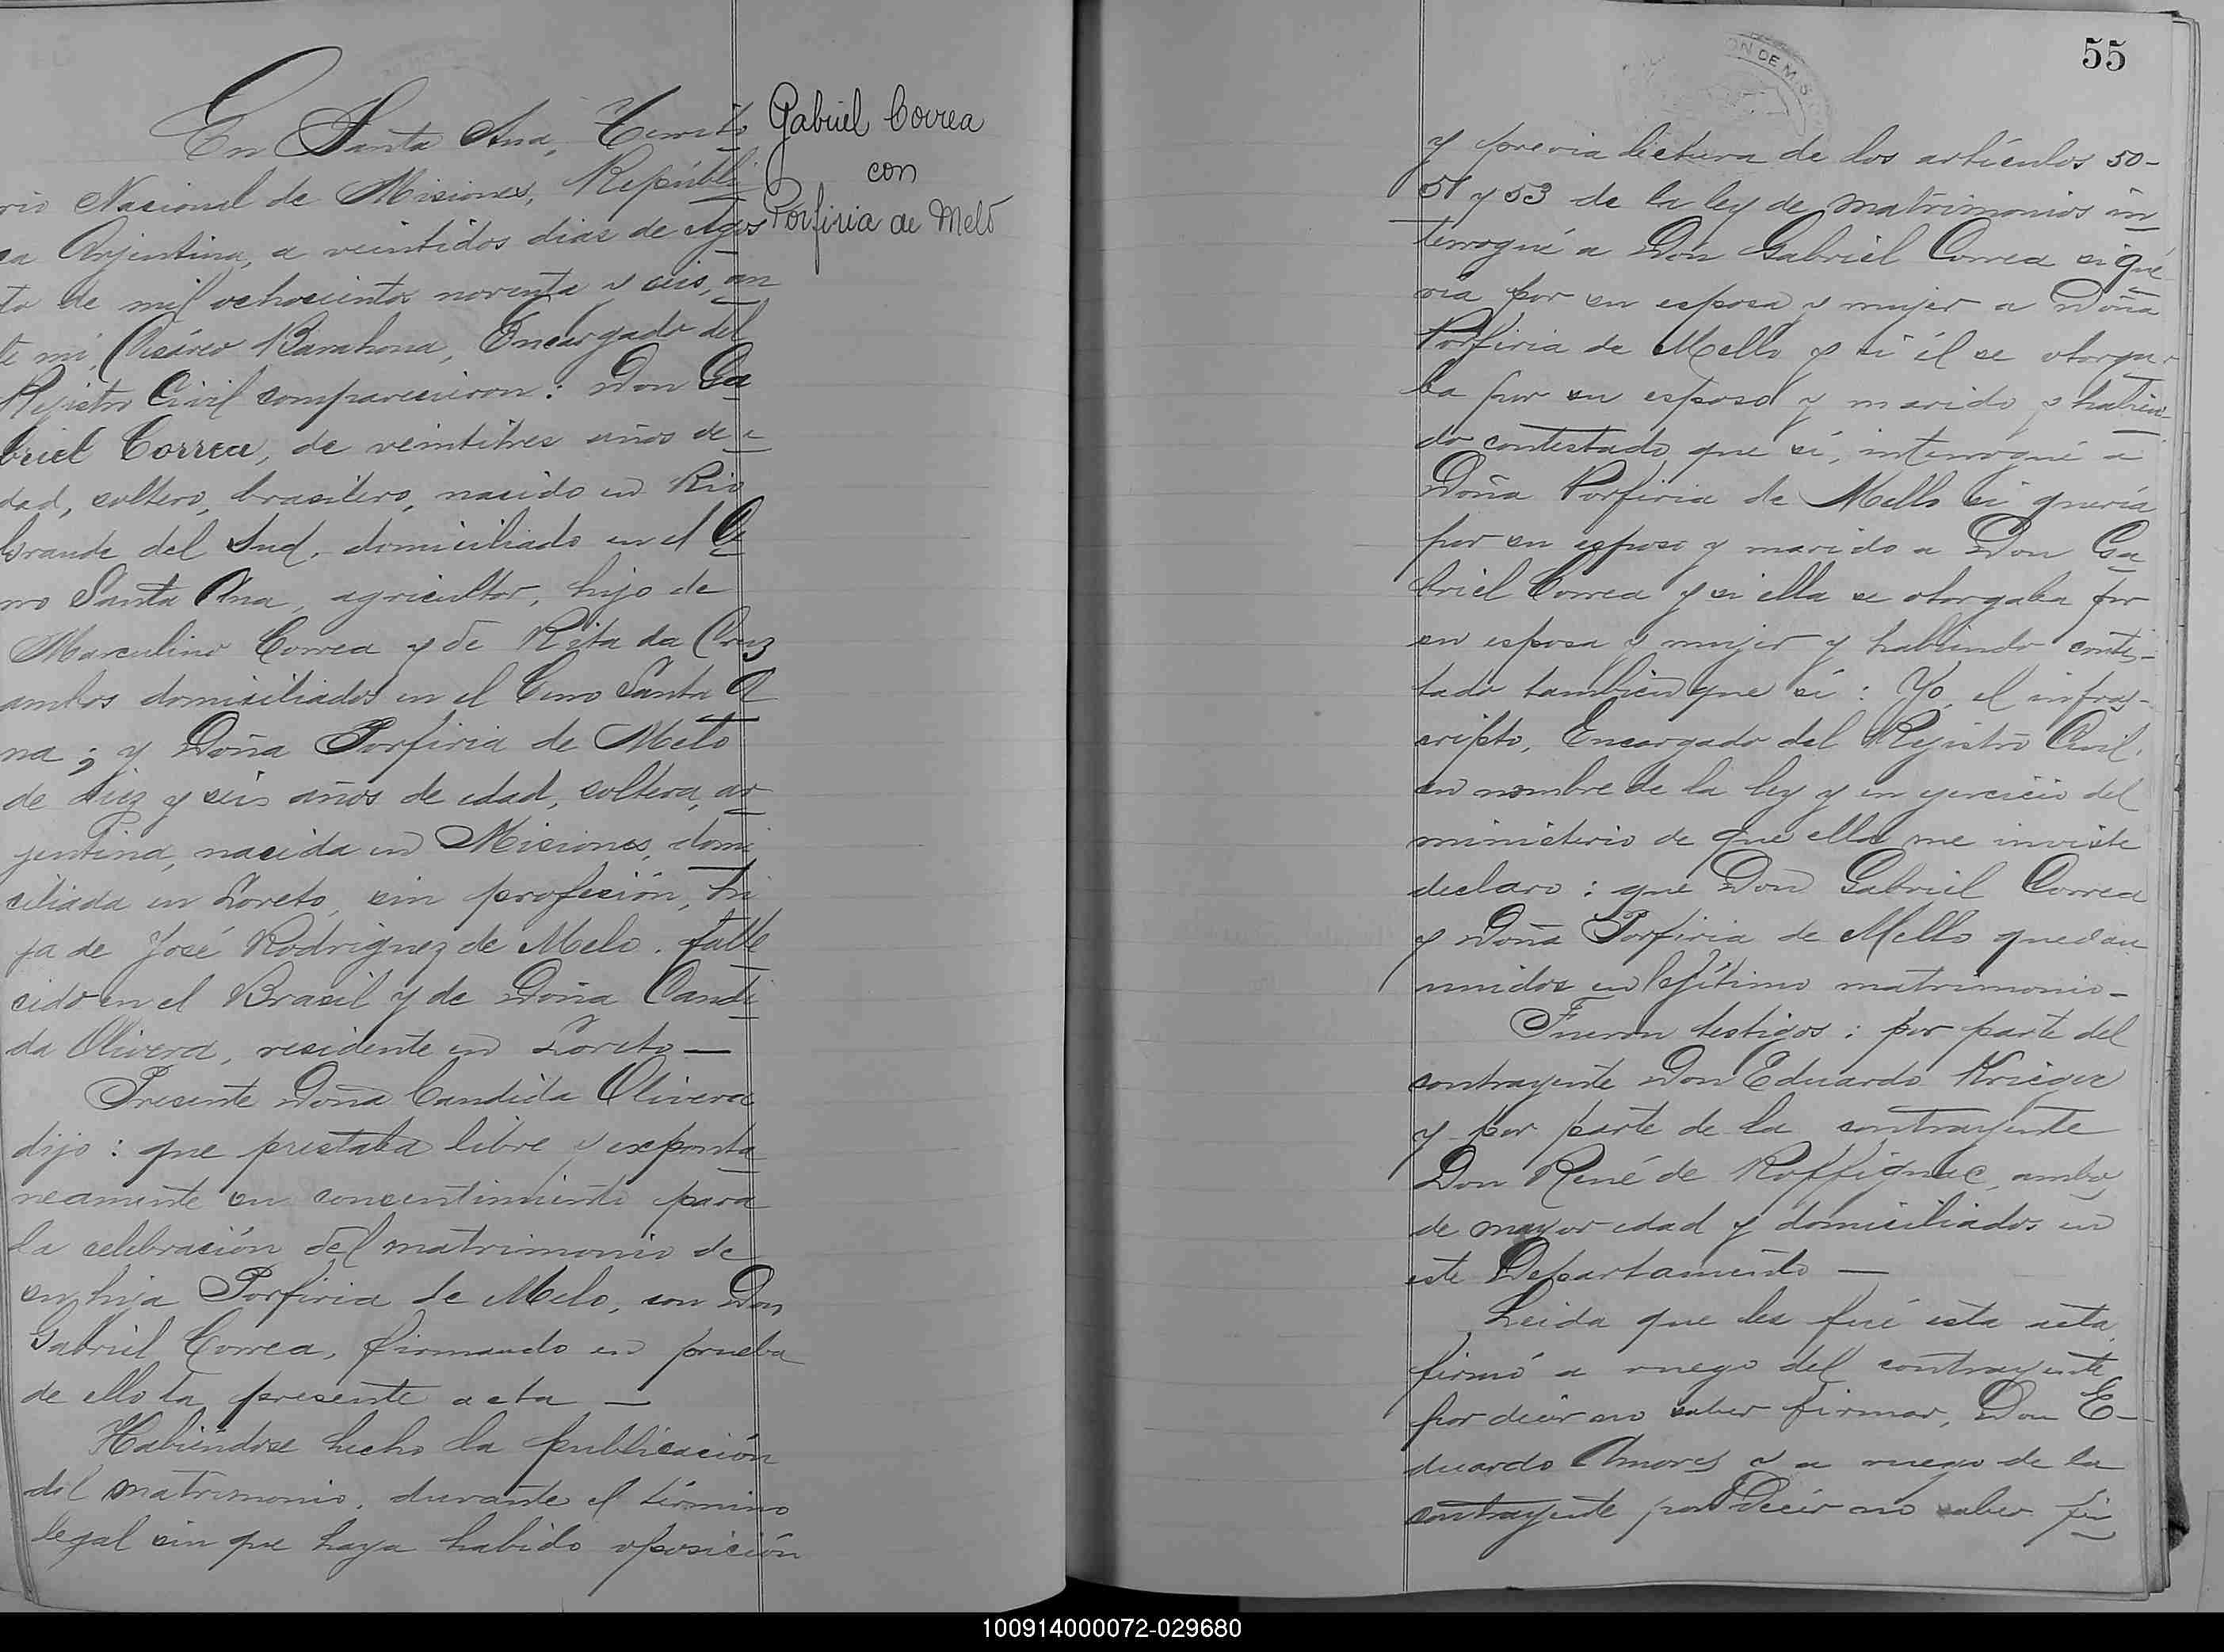 En Santa Ana, Territo
rio Nacional de Misiones, Repúbli
ca Arjentina, a veintidos dias de Agos
to de mil ochocientos noventa y seis, an
te mi, Cesáreo Barahona, Encargado del
Rejistro Civil comparecieron: Don Ga
briel Correa, de veintitres años de e
dad, soltero, brasilero, nacido en Rio
Grande del Sud, domiciliado en el Ce
rro Santa Ana, agricultor, hijo de
Marculino Correa y de Rita da Cruz
ambos domiciliados en el Cerro Santa A
na; y Doña Porfiria de Melo
de diez y seis años de edad, soltera, ar
jentina, nacida en Misiones, domi
ciliada en Loreto, sin profesión, hi
ja de José Rodriguez de Melo, falle
cido en el Brasil y de Doña Candi
da Olivera, residente en Loreto —
Presente Doña Candida Olivera
dijo: que prestaba libre y esponta
neamente su consentimiento para
la celebración del matrimonio de
su hija Porfiria de Melo, con Don
Gabriel Correa, firmando en prueba
de ello la presente acta —
Habiéndose hecho la publicación
del matrimonio, durante el término
legal sin que haya habido oposición
Gabriel Correa
con
Porfiria de Melo
55
y previa lectura de los artículos 50-
51 y 53 de la ley de matrimonios in
terrogué a Don Gabriel Correa si que
ria por su esposa y mujer a Doña
Porfiria de Mello y si él se otorga-
ba por su esposo y marido y habien
do contestado que sí, interrogué a
Doña Porfiria de Mello si quería
por su esposo y marido a Don Ga
briel Correa y si ella se otorgaba por
su esposa y mujer y habiendo contes-
tado tambien que sí: Yo, el infras-
cripto, Encargado del Rejistro Civil,
en nombre de la ley y en ejercicio del
ministerio de que ella me inviste
declaro: que Don Gabriel Correa
y Doña Porfiria de Mello quedan
unidos en lejítimo matrimonio-
Fueron testigos: por parte del
contrayente Don Eduardo Krieger
y por parte de la contrayente
Don René de Roffignac, ambos
de mayor edad y domiciliados en
este Departamento —
Leida que les fué esta acta,
firmó a ruego del contrayente
por decir no saber firmar, Don E-
duardo Amores y a ruego de la
contrayente por decir no saber fir
100914000072-029680